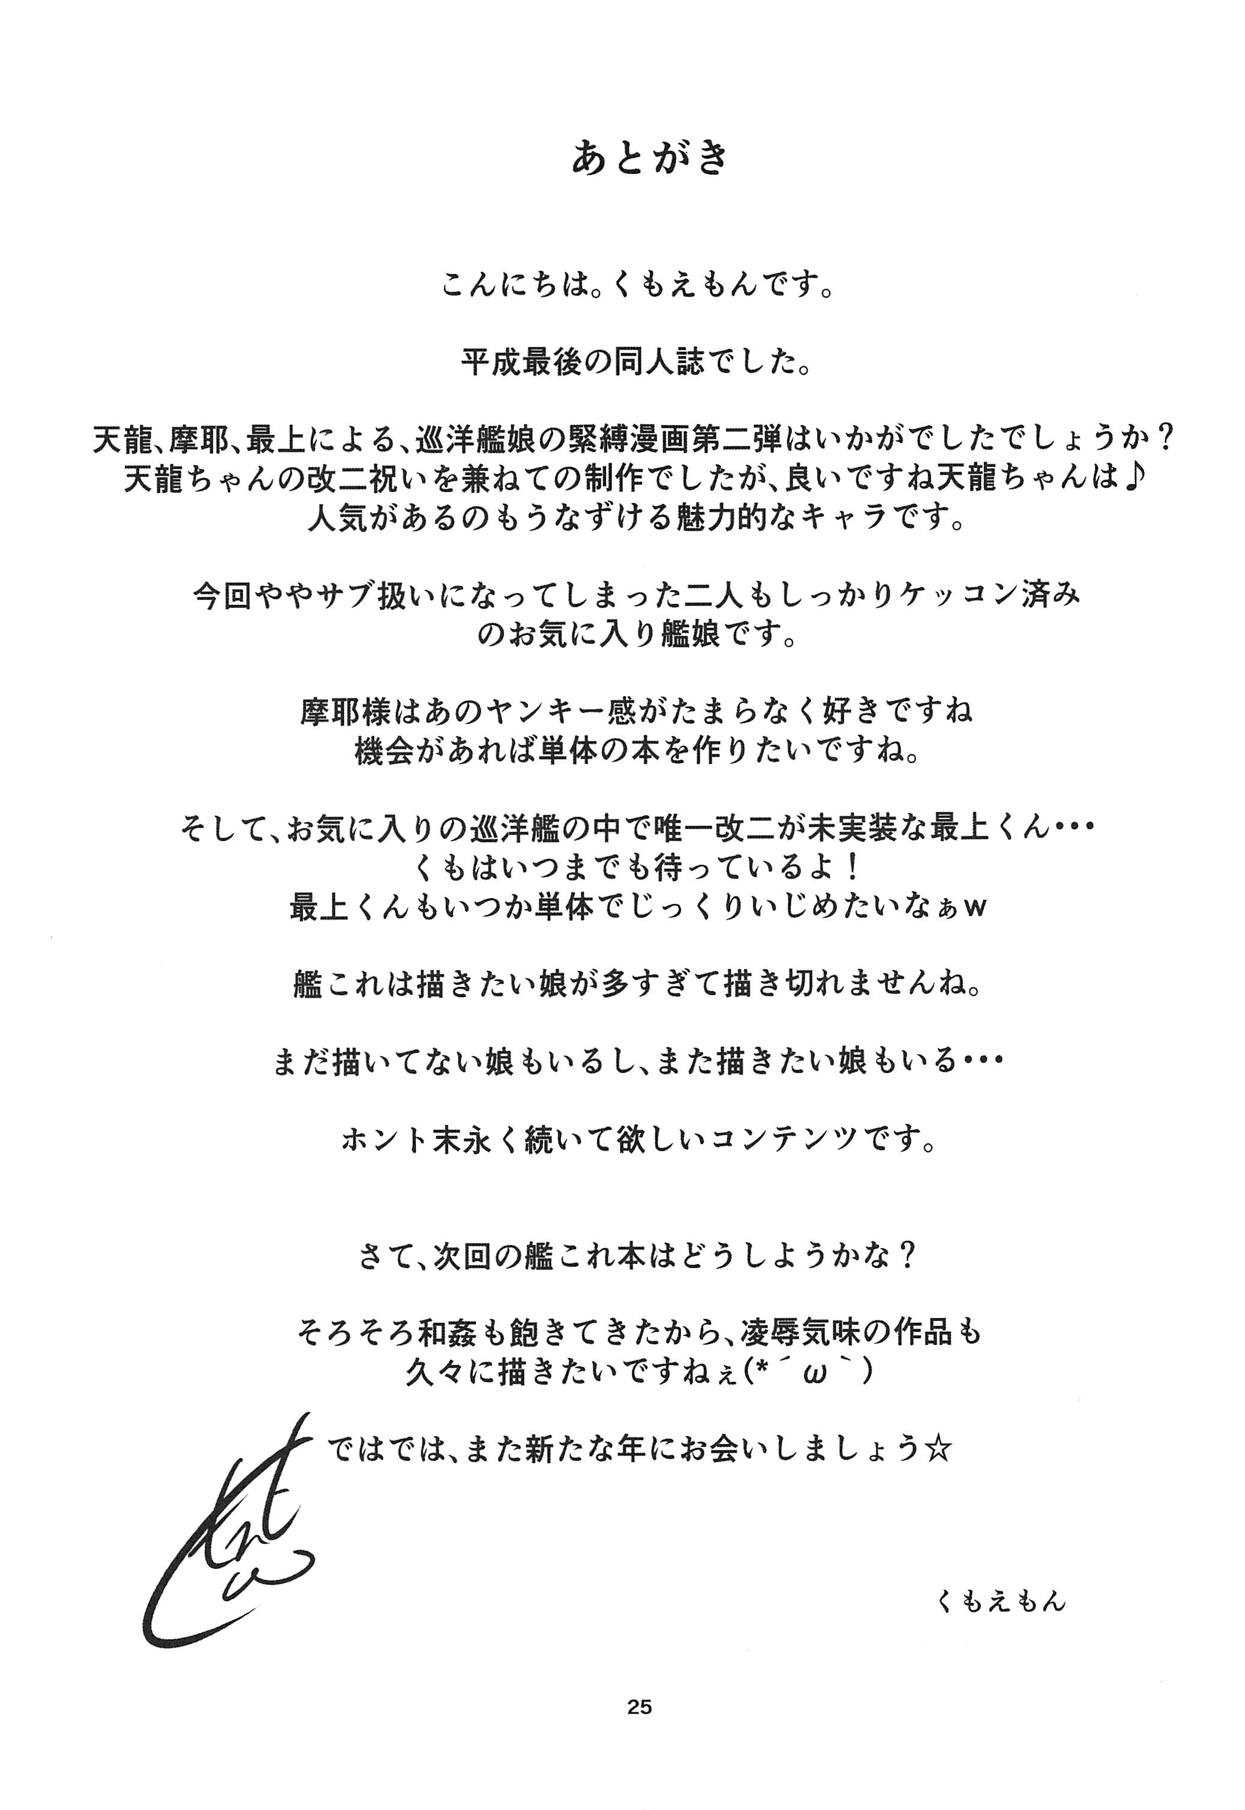 あとがき
こんにちは。くもえもんです。
平成最後の同人誌でした。
天龍、摩耶、最上による、巡洋艦娘の緊縛漫画第二弾はいかがでしたでしょうか？
天龍ちゃんの改二祝いを兼ねての制作でしたが、良いですね天龍ちゃんは♪
人気があるのもうなずける魅力的なキャラです。
今回ややサブ扱いになってしまった二人もしっかりケッコン済み
のお気に入り艦娘です。
摩耶様はあのヤンキー感がたまらなく好きですね
機会があれば単体の本を作りたいですね。
そして、お気に入りの巡洋艦の中で唯一改二が未実装な最上くん・・・
くもはいつまでも待っているよ！
最上くんもいつか単体でじっくりいじめたいなぁw
艦これは描きたい娘が多すぎて描き切れませんね。
まだ描いてない娘もいるし、また描きたい娘もいる・・・
ホント末永く続いて欲しいコンテンツです。
さて、次回の艦これ本はどうしようかな？
そろそろ和姦も飽きてきたから、凌辱気味の作品も
久々に描きたいですねぇ(*´ω｀)
ではでは、また新たな年にお会いしましょう☆
くもえもん
25